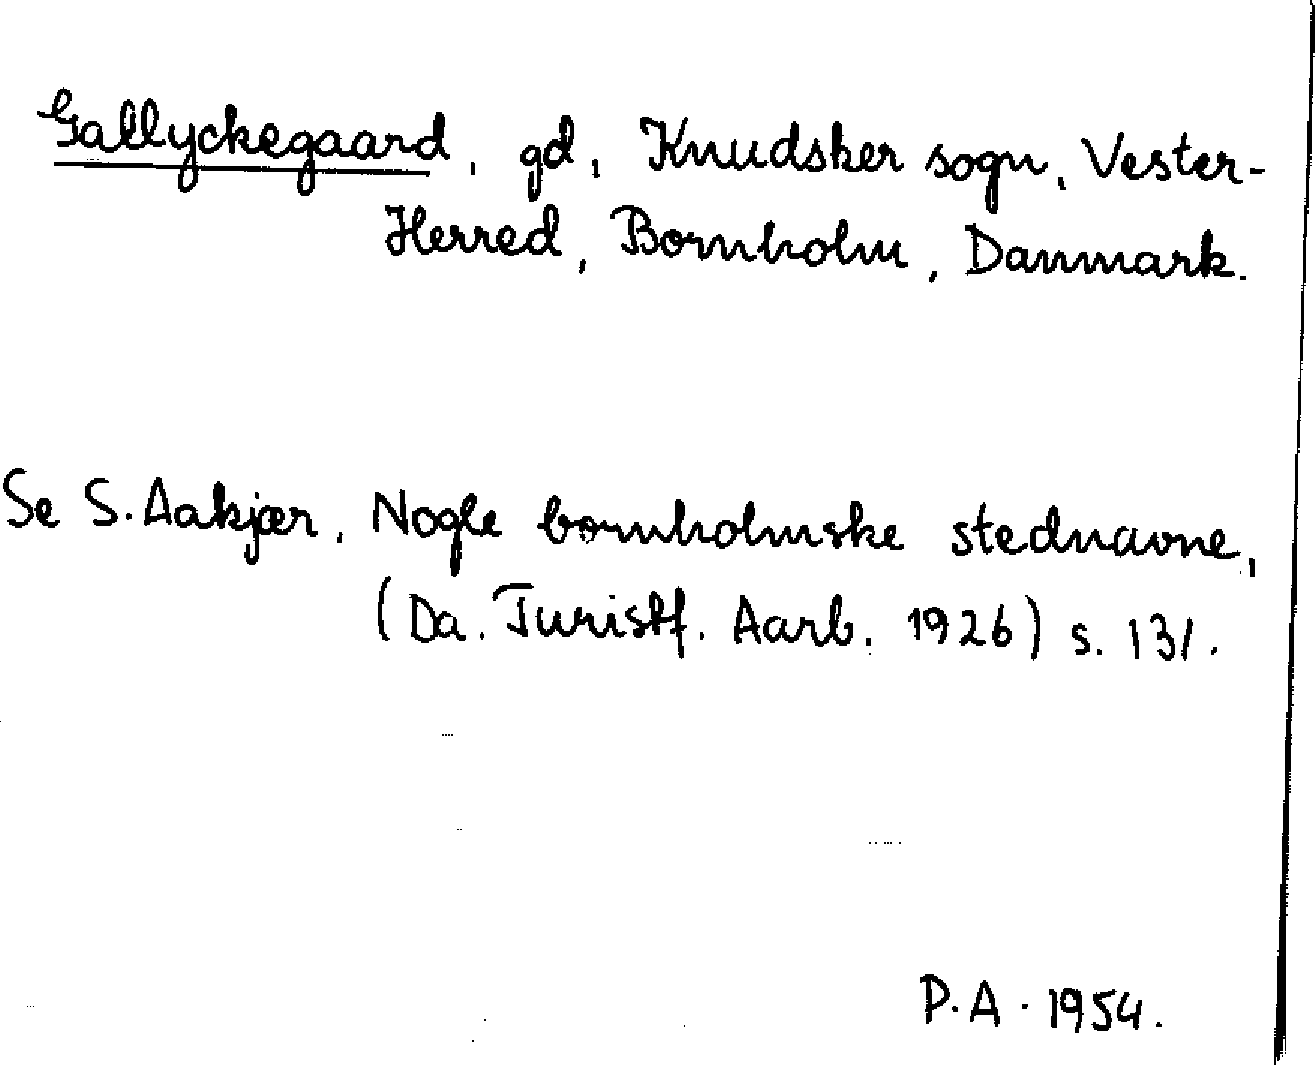 Gallyckegaard, gd, Knudsker sogn, Vester-
Herred, Bornholm, Danmark.
Se S. Aakjær, Nogle bornholmske stednavne,
(Da. Turistf. Aarb. 1926) s. 131.
P.A. 1954.